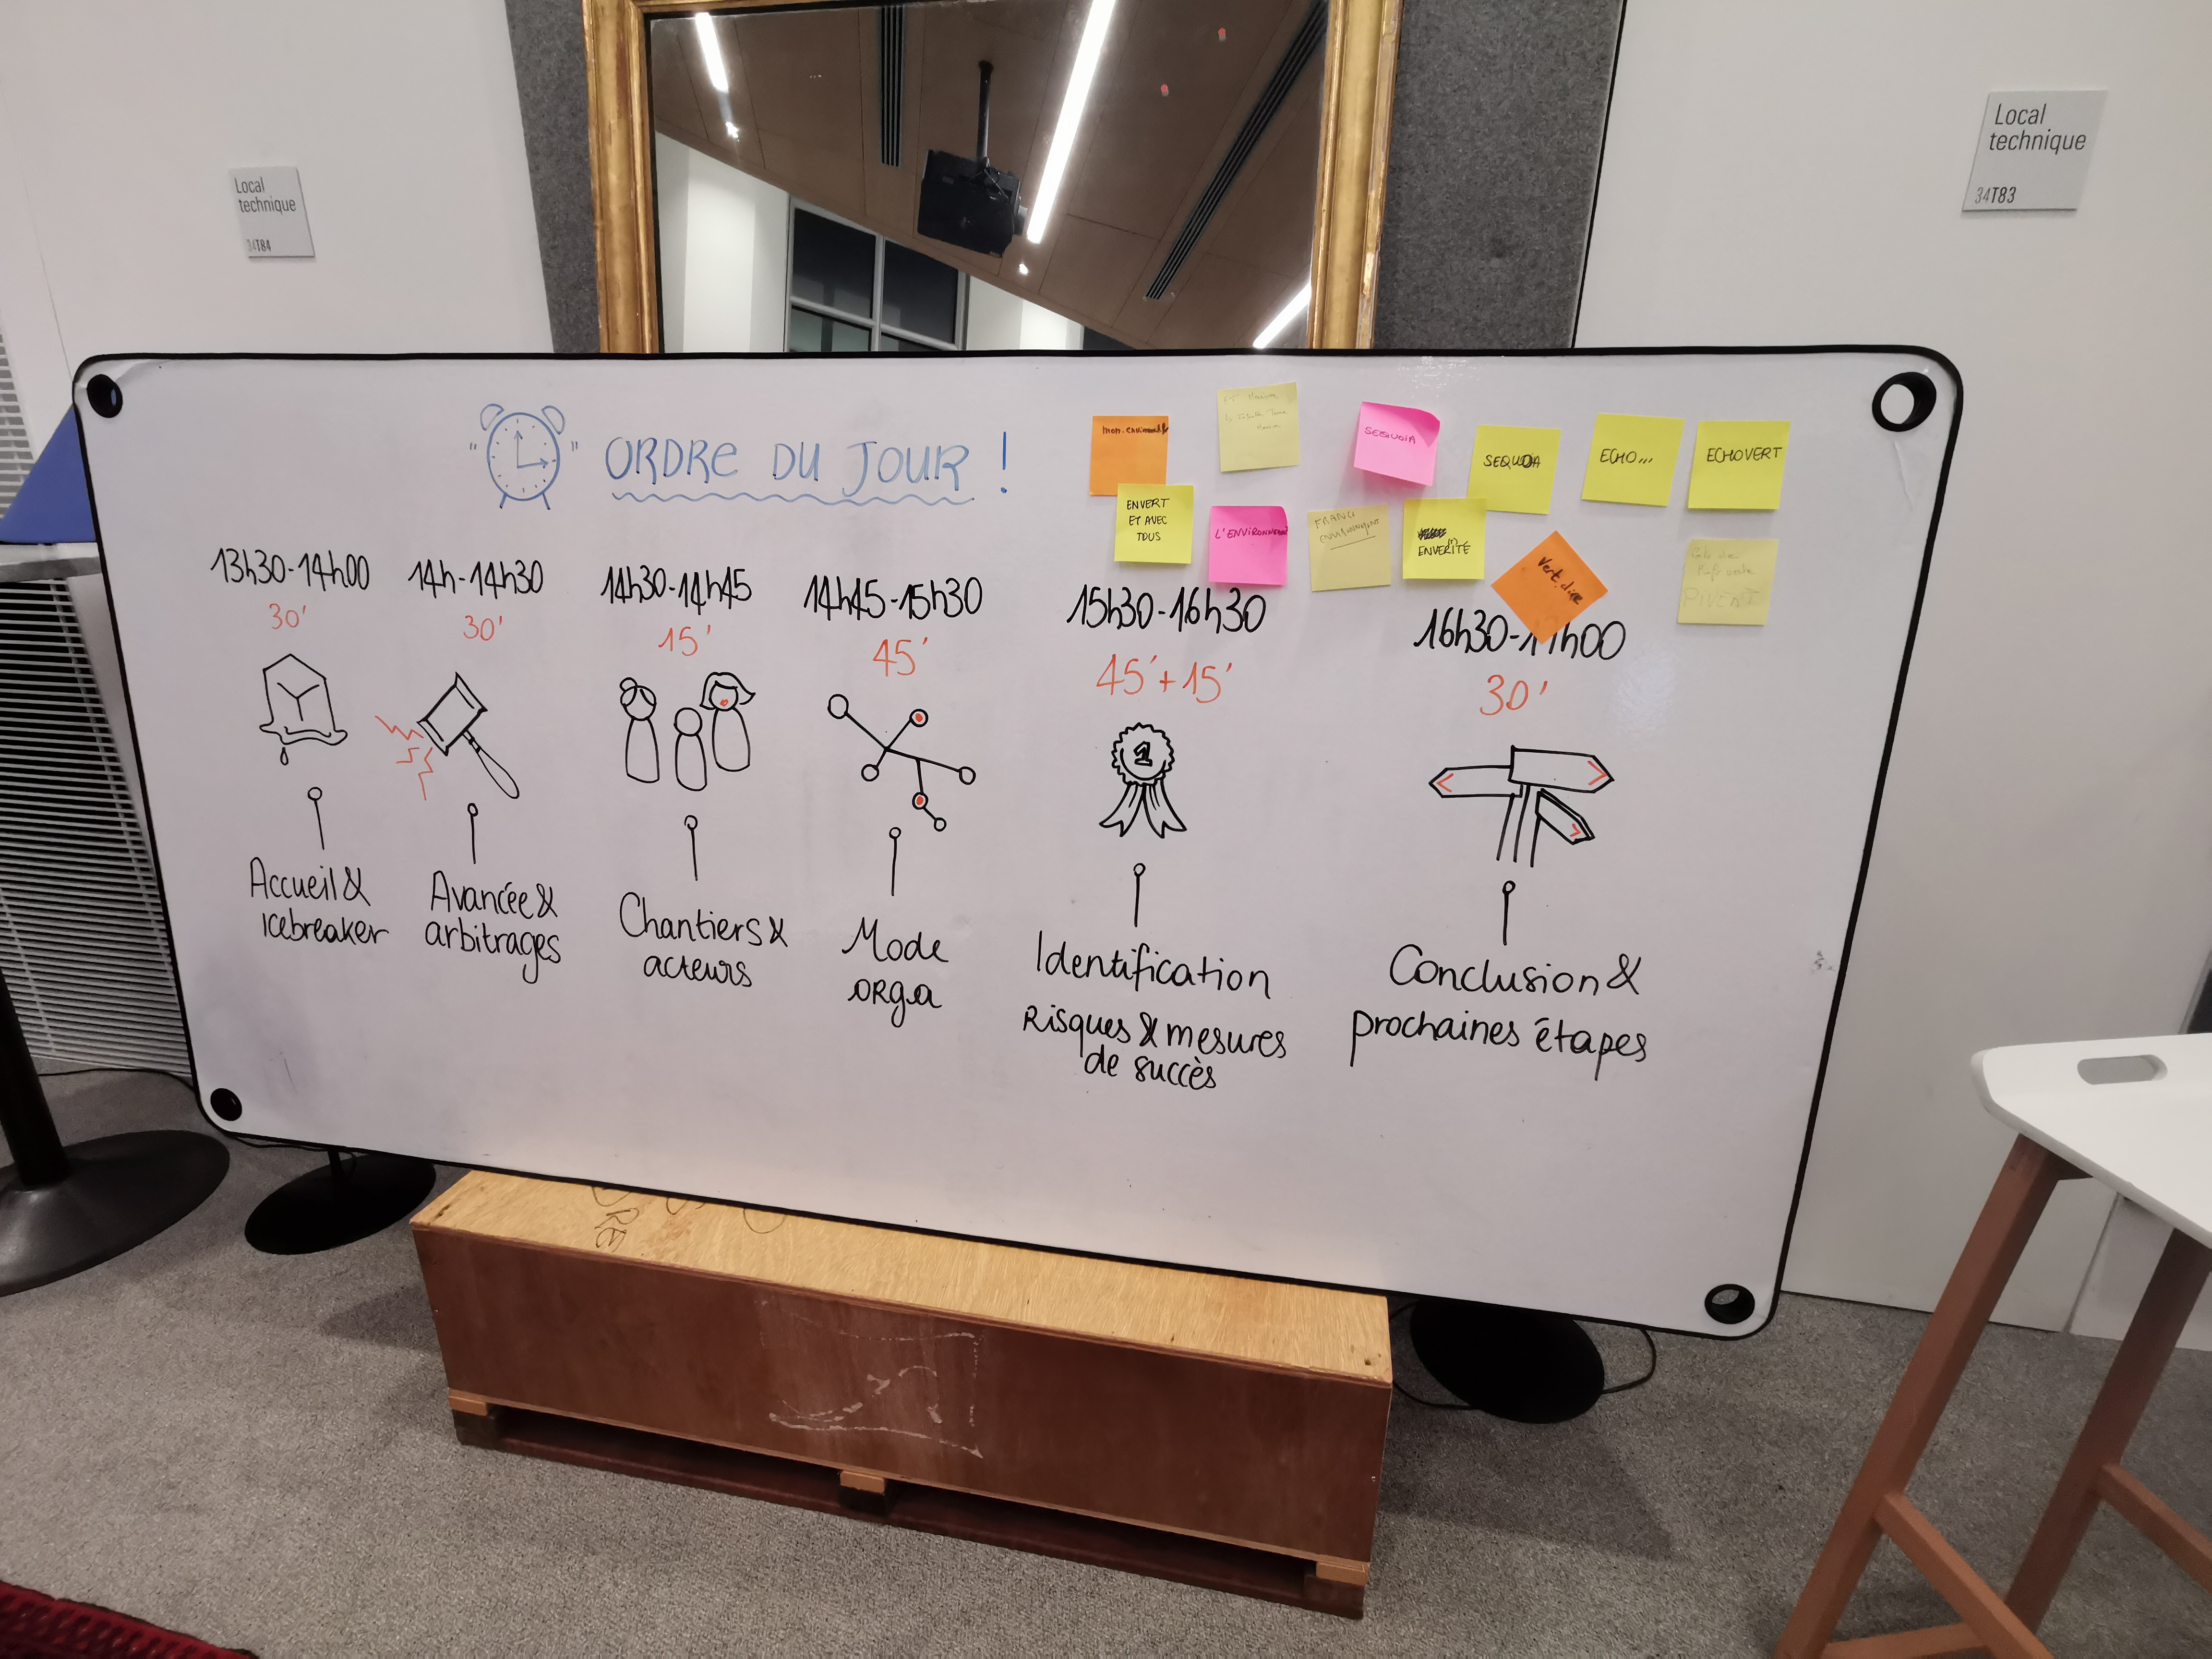 Local
technique
34T84
Local
technique
34T83
ORDRE DU JOUR !
mon.
SEQUOIA
SEQUOIA
ECHO...
ECHOVERT
ENVERT
ET AVEC
TOUS
L'ENVIRONNEMENT
FRANCE
ENVERITÉ
Vert.dire
PIVERT
13h30-14h00
30'
Accueil &
icebreaker
14h-14h30
30'
Avancée &
arbitrages
14h30-14h45
15'
Chantiers &
acteurs
14h45-15h30
45'
Mode
orga
15h30-16h30
45'+15'
1
Identification
Risques & mesures
de succès
16h30-17h00
30'
Conclusion &
prochaines étapes